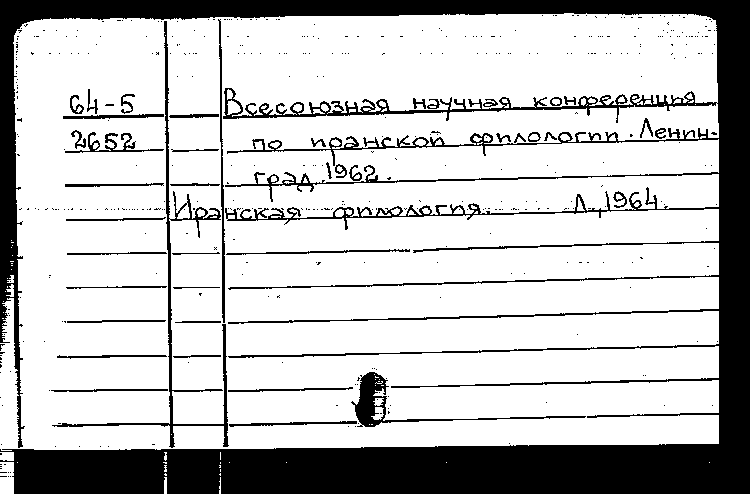 64-5 Всесоюзная научная конференция
2652 по иранской филологии. Ленин-
град 1962.
Иранская филология. Л., 1964.